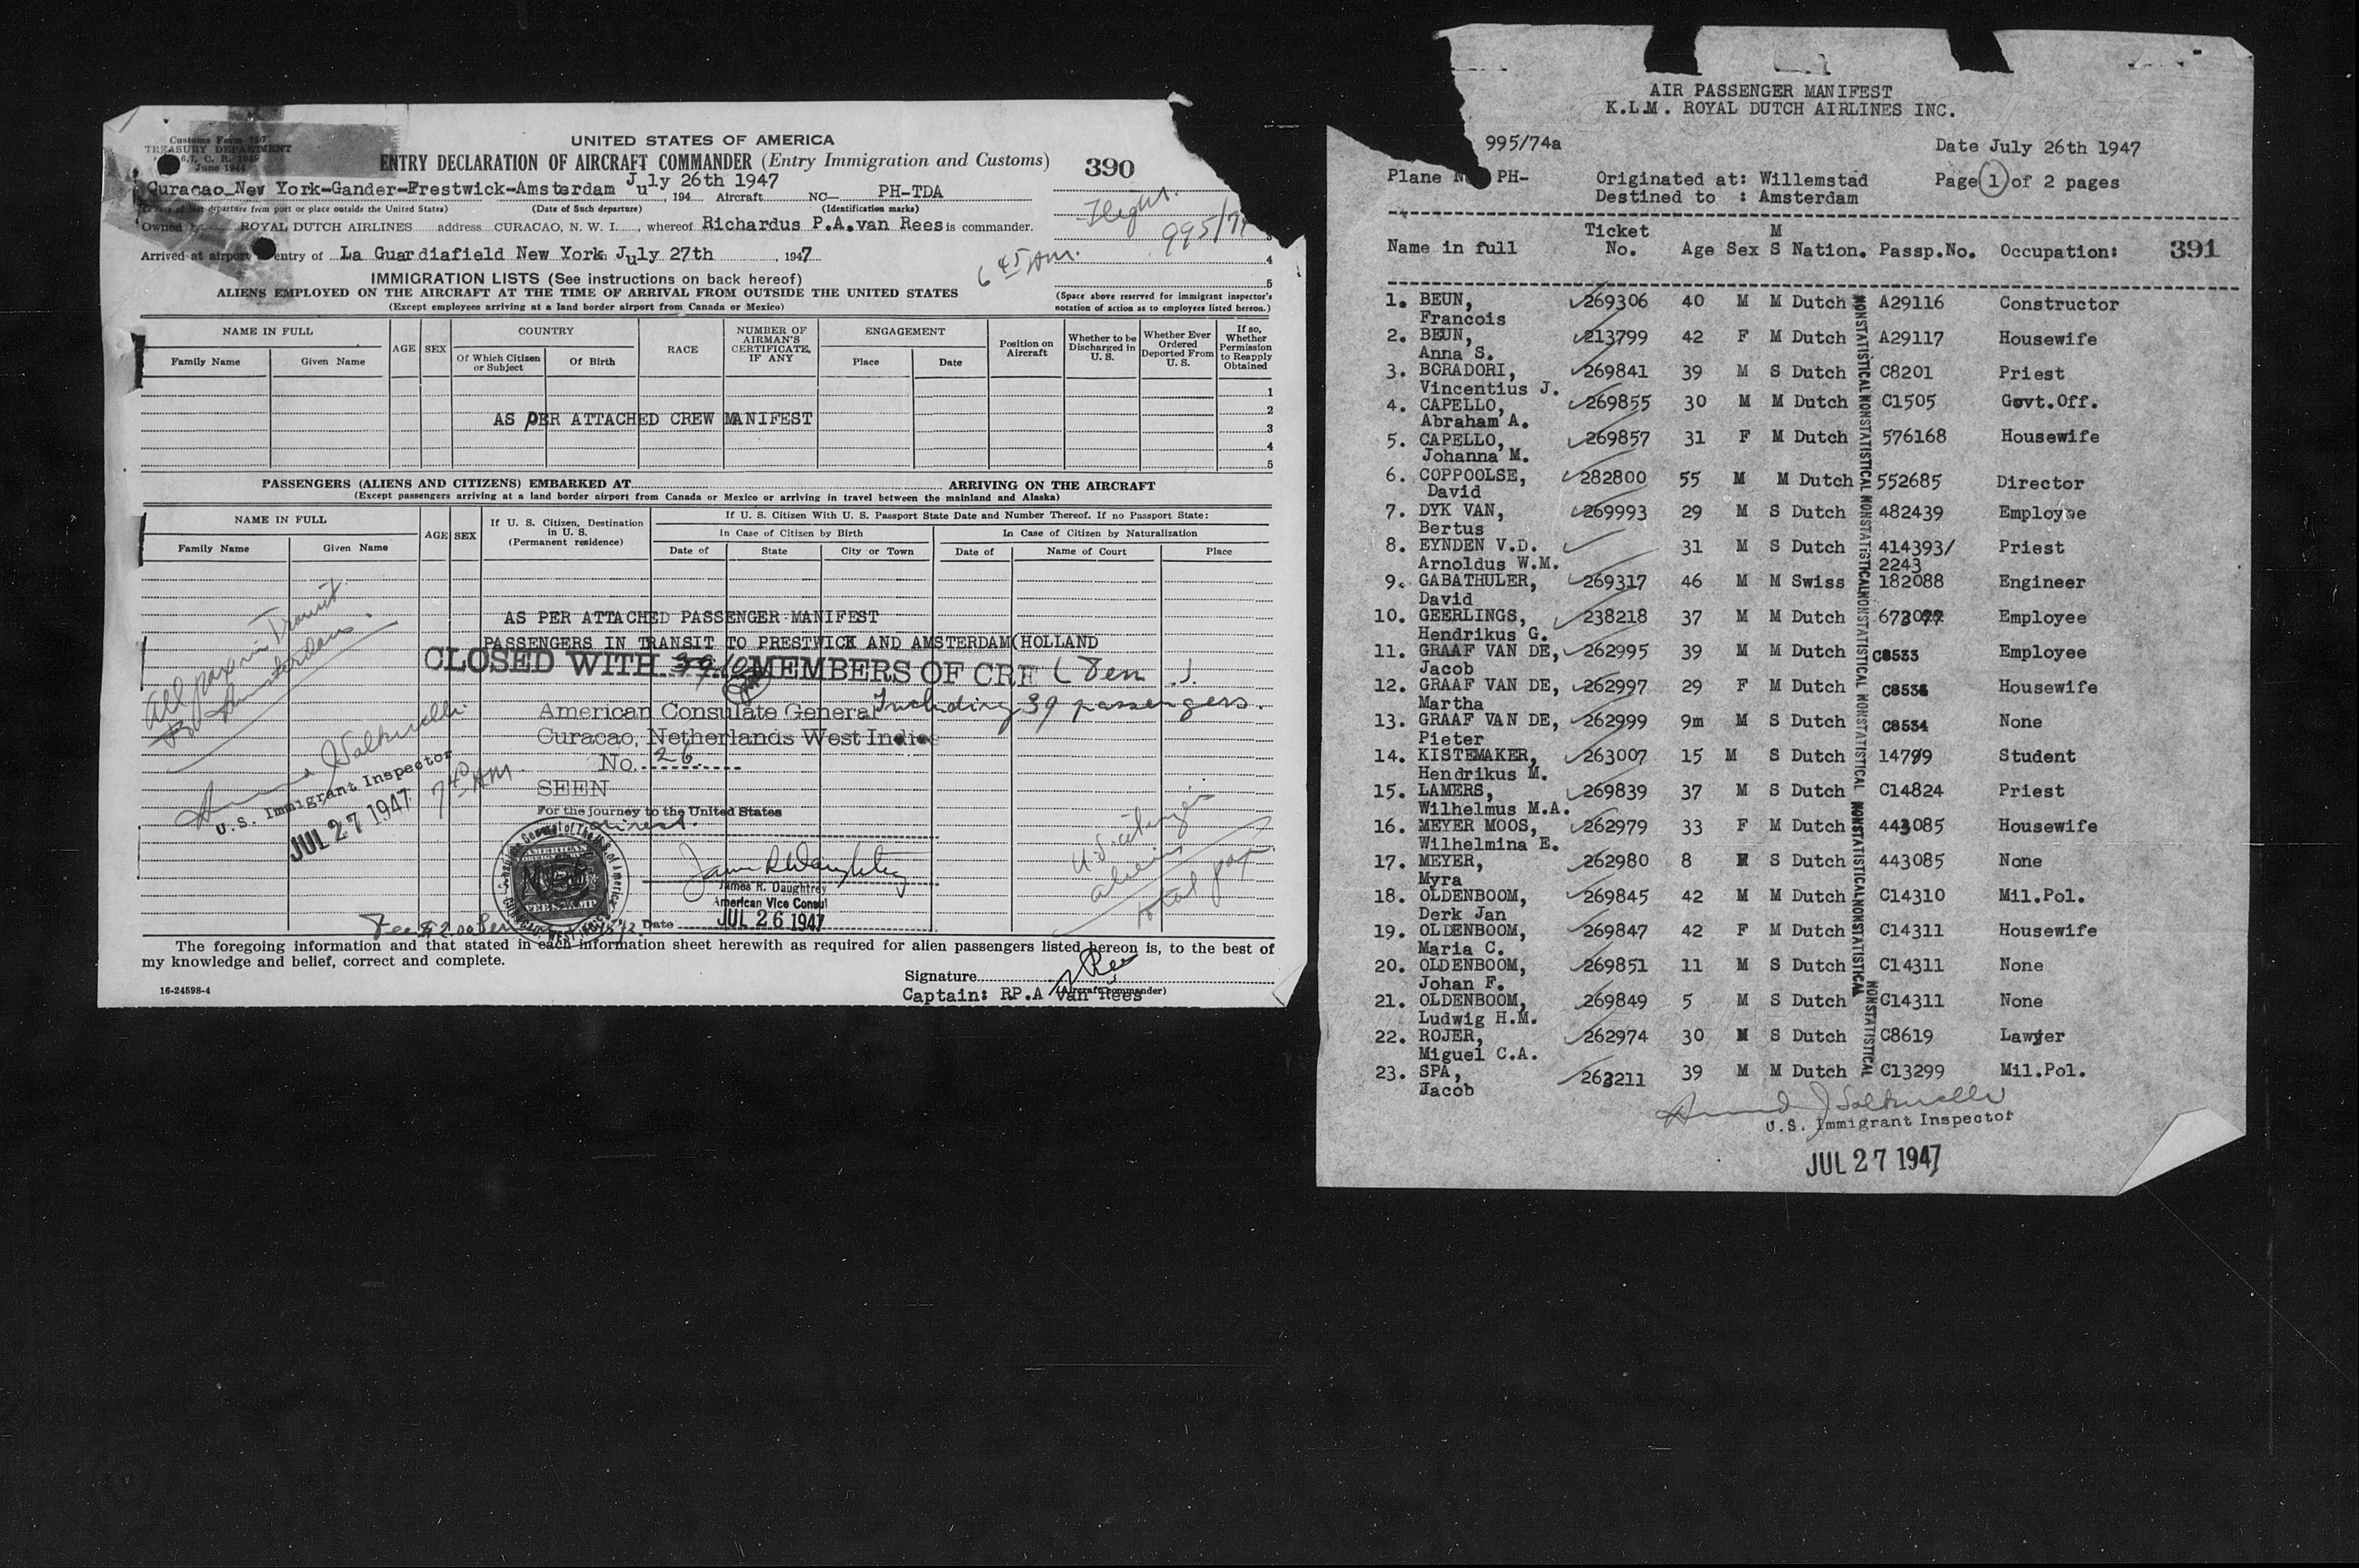 Customs Form 7507
TREASURY DEPARTMENT
June 1944
UNITED STATES OF AMERICA
ENTRY DECLARATION OF AIRCRAFT COMMANDER (Entry Immigration and Customs)
390
Curacao-New York-Gander-Prestwick-Amsterdam July 26th 1947, 194 Aircraft NC— PH-TDA
departure from port or place outside the United States) (Date of Such departure) (Identification marks)
Flight.
995/74
Owned by ROYAL DUTCH AIRLINES address CURACAO, N. W. I., whereof Richardus P.A.van Rees is commander.
Arrived at airport entry of La Guardiafield New York July 27th, 1947
6 45 AM.
3
4
5
IMMIGRATION LISTS (See instructions on back hereof)
ALIENS EMPLOYED ON THE AIRCRAFT AT THE TIME OF ARRIVAL FROM OUTSIDE THE UNITED STATES
(Except employees arriving at a land border airport from Canada or Mexico)
(Space above reserved for immigrant inspector's notation of action as to employees listed hereon.)
NAME IN FULL
Family Name Given Name
AGE SEX
COUNTRY
Of Which Citizen or Subject Of Birth
RACE
NUMBER OF AIRMAN'S CERTIFICATE, IF ANY
ENGAGEMENT
Place Date
Position on Aircraft
Whether to be Discharged in U. S.
Whether Ever Ordered Deported From U. S.
If so, Whether Permission to Reapply Obtained
1
2
AS PER ATTACHED CREW MANIFEST
3
4
5
PASSENGERS (ALIENS AND CITIZENS) EMBARKED AT ARRIVING ON THE AIRCRAFT
(Except passengers arriving at a land border airport from Canada or Mexico or arriving in travel between the mainland and Alaska)
NAME IN FULL
Family Name Given Name
AGE SEX
If U. S. Citizen, Destination in U. S. (Permanent residence)
If U. S. Citizen With U. S. Passport State Date and Number Thereof. If no Passport State:
In Case of Citizen by Birth In Case of Citizen by Naturalization
Date of State City or Town Date of Name of Court Place
All pax in Transit
to Amsterdam.
AS PER ATTACHED PASSENGER MANIFEST
PASSENGERS IN TRANSIT TO PRESTWICK AND AMSTERDAM(HOLLAND
CLOSED WITH 39 10 MEMBERS OF CRE (Ten).
Including 39 passengers.
American Consulate General
Curacao, Netherlands West Indies
No. 26
SEEN
For the journey to the United States
direct.
U.S. Immigrant Inspector
JUL 27 1947
7 40 AM
AMERICAN
FEE STAMP
James R. Daughtrey
American Vice Consul
Date JUL 26 1947
U.S. citizens
aliens
total pax
The foregoing information and that stated in each information sheet herewith as required for alien passengers listed hereon is, to the best of
my knowledge and belief, correct and complete.
Signature
(Aircraft commander)
16-24598-4
Captain: RP.A van Rees
AIR PASSENGER MANIFEST
K.L.M. ROYAL DUTCH AIRLINES INC.
995/74a
Date July 26th 1947
Plane No PH- Originated at: Willemstad Page 1 of 2 pages
Destined to : Amsterdam
Name in full Ticket No. Age Sex M S Nation. Passp.No. Occupation: 391
1. BEUN, 269306 40 M M Dutch A29116 Constructor
Francois
2. BEUN, 213799 42 F M Dutch A29117 Housewife
Anna S.
3. BORADORI, 269841 39 M S Dutch C8201 Priest
Vincentius J.
4. CAPELLO, 269855 30 M M Dutch C1505 Govt.Off.
Abraham A.
5. CAPELLO, 269857 31 F M Dutch 576168 Housewife
Johanna M.
6. COPPOOLSE, 282800 55 M M Dutch 552685 Director
David
7. DYK VAN, 269993 29 M S Dutch 482439 Employee
Bertus
8. EYNDEN V.D. 31 M S Dutch 414393/ Priest
Arnoldus W.M. 2243
9. GABATHULER, 269317 46 M M Swiss 182088 Engineer
David
10. GEERLINGS, 238218 37 M M Dutch 673077 Employee
Hendrikus G.
11. GRAAF VAN DE, 262995 39 M M Dutch C8533 Employee
Jacob
12. GRAAF VAN DE, 262997 29 F M Dutch C8535 Housewife
Martha
13. GRAAF VAN DE, 262999 9m M S Dutch C8534 None
Pieter
14. KISTEMAKER, 263007 15 M S Dutch 14799 Student
Hendrikus M.
15. LAMERS, 269839 37 M S Dutch C14824 Priest
Wilhelmus M.A.
16. MEYER MOOS, 262979 33 F M Dutch 443085 Housewife
Wilhelmina E.
17. MEYER, 262980 8 M S Dutch 443085 None
Myra
18. OLDENBOOM, 269845 42 M M Dutch C14310 Mil.Pol.
Derk Jan
19. OLDENBOOM, 269847 42 F M Dutch C14311 Housewife
Maria C.
20. OLDENBOOM, 269851 11 M S Dutch C14311 None
Johan F.
21. OLDENBOOM, 269849 5 M S Dutch C14311 None
Ludwig H.M.
22. ROJER, 262974 30 M S Dutch C8619 Lawyer
Miguel C.A.
23. SPA, 263211 39 M M Dutch C13299 Mil.Pol.
Jacob
NONSTATISTICAL NONSTATISTICAL NONSTATISTICAL NONSTATISTICAL NONSTATISTICAL NONSTATISTICAL NONSTATISTICAL NONSTATISTICAL
U.S. Immigrant Inspector
JUL 27 1947